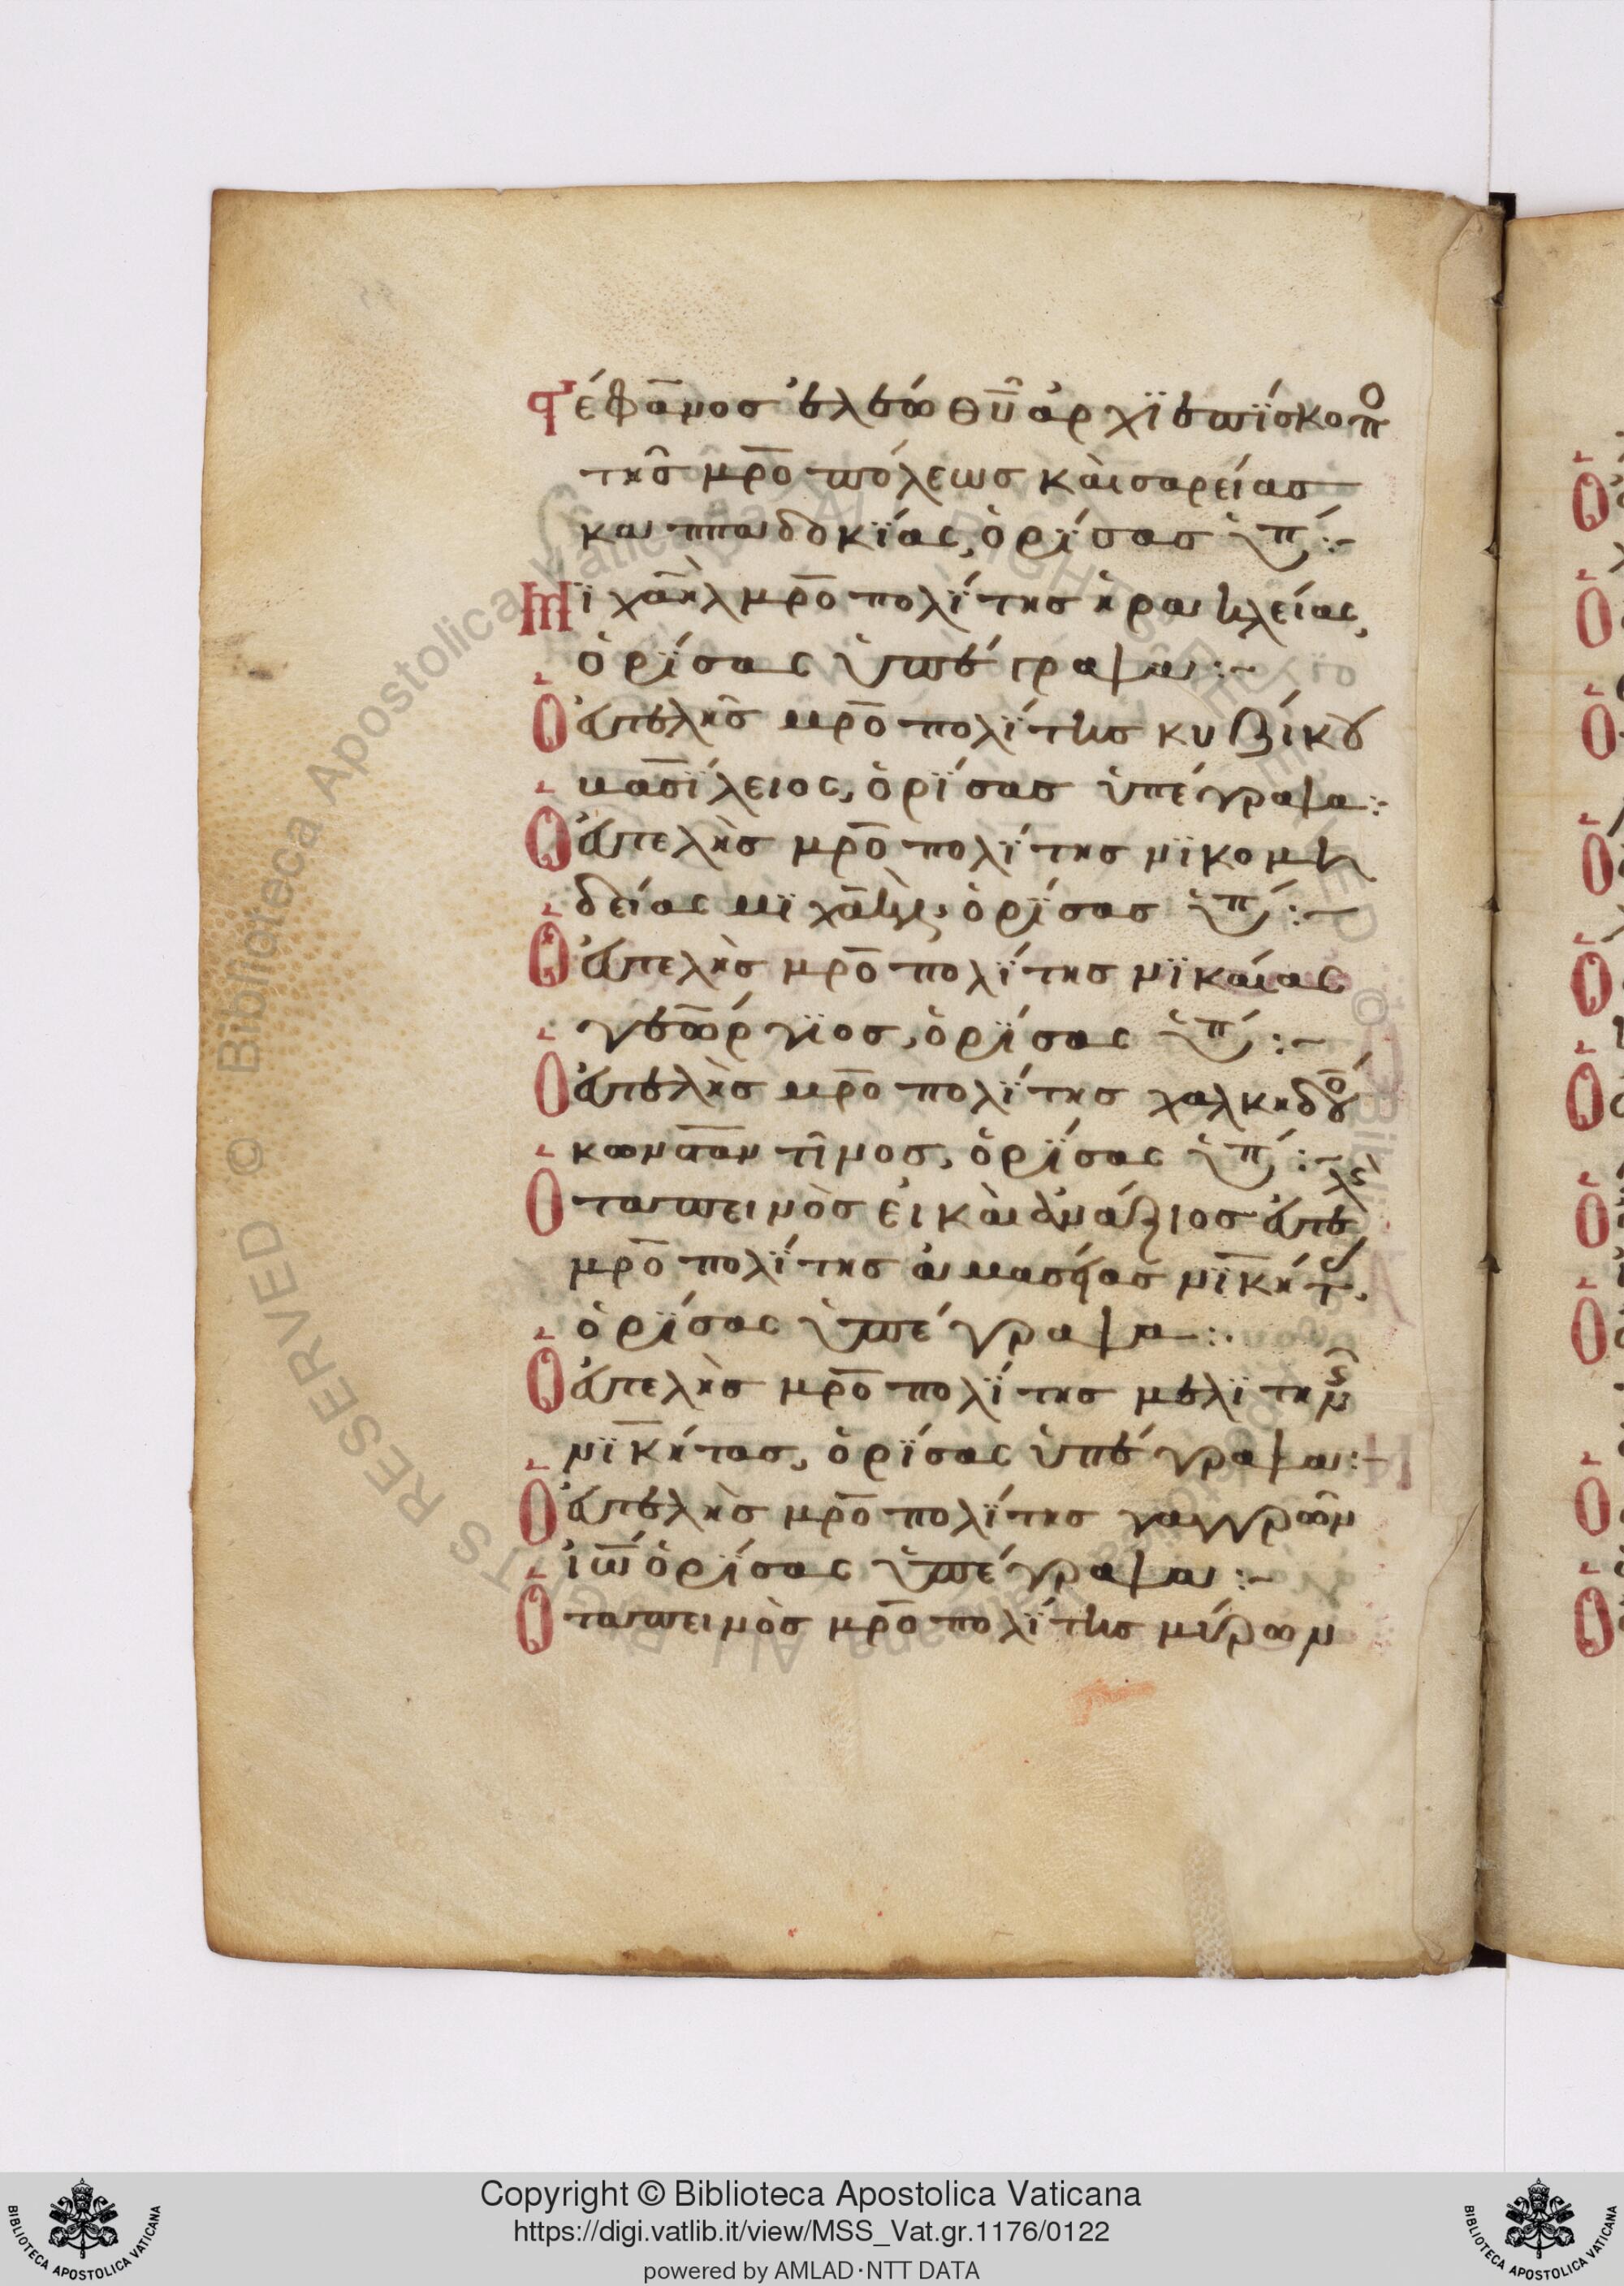 Στέφανος ἐλέω θῦ ἀρχϊεπΐσκοπο
τῆς μρο πόλεως καὶσαρείας
καππαδοκΐας, ὁρΐσας ὑπ́ :~
Μϊχαὴλ μρο πολΐτης ἡρακλείας,
ὁρΐσας ὑπέγραψα :~
Ὁ ἀπελὴς μρο πολΐτης κυζίκου
βασΐλειος, ὁρΐσας ὑπέγραψα :
Ὁ ἀπελὴς μρο πολΐτης νϊκομη
δείας μϊχαὴλ, ὁρΐσας ὑπ́ :~
Ὁ ἀπελὴς μρο πολΐτης νϊκαίας
γεώργϊος, ὁρΐσας ὑπ́ :~
Ὁ ἀπελὴς μρο πολΐτης χαλκηδόου
κωνσταντῖνος, ὁρΐσας ὑπ́ :~
Ὁ ταπεινὸς εἰ καὶ ἀνάξιος ἀπελς
μρο πολΐτης ἀμασείας νϊκήτ,
ὁρΐσας ὑπέγραψα :.
Ὁ ἀπελὴς μρο πολΐτης μελϊτην
νϊκήτας, ὁρΐσας ὑπέγραψα :~
Ὁ ἀπελὴς μρο πολΐτης γαγγρῶν
ἰω ὁρΐσας ὑπέγραψα :~
Ὁ ταπεινὸς μρο πολΐτης μύρων
Copyright © Biblioteca Apostolica Vaticana
https://digi.vatlib.it/view/MSS_Vat.gr.1176/0122
powered by AMLAD·NTT DATA
BIBLIOTECA APOSTOLICA VATICANA
BIBLIOTECA APOSTOLICA VATICANA